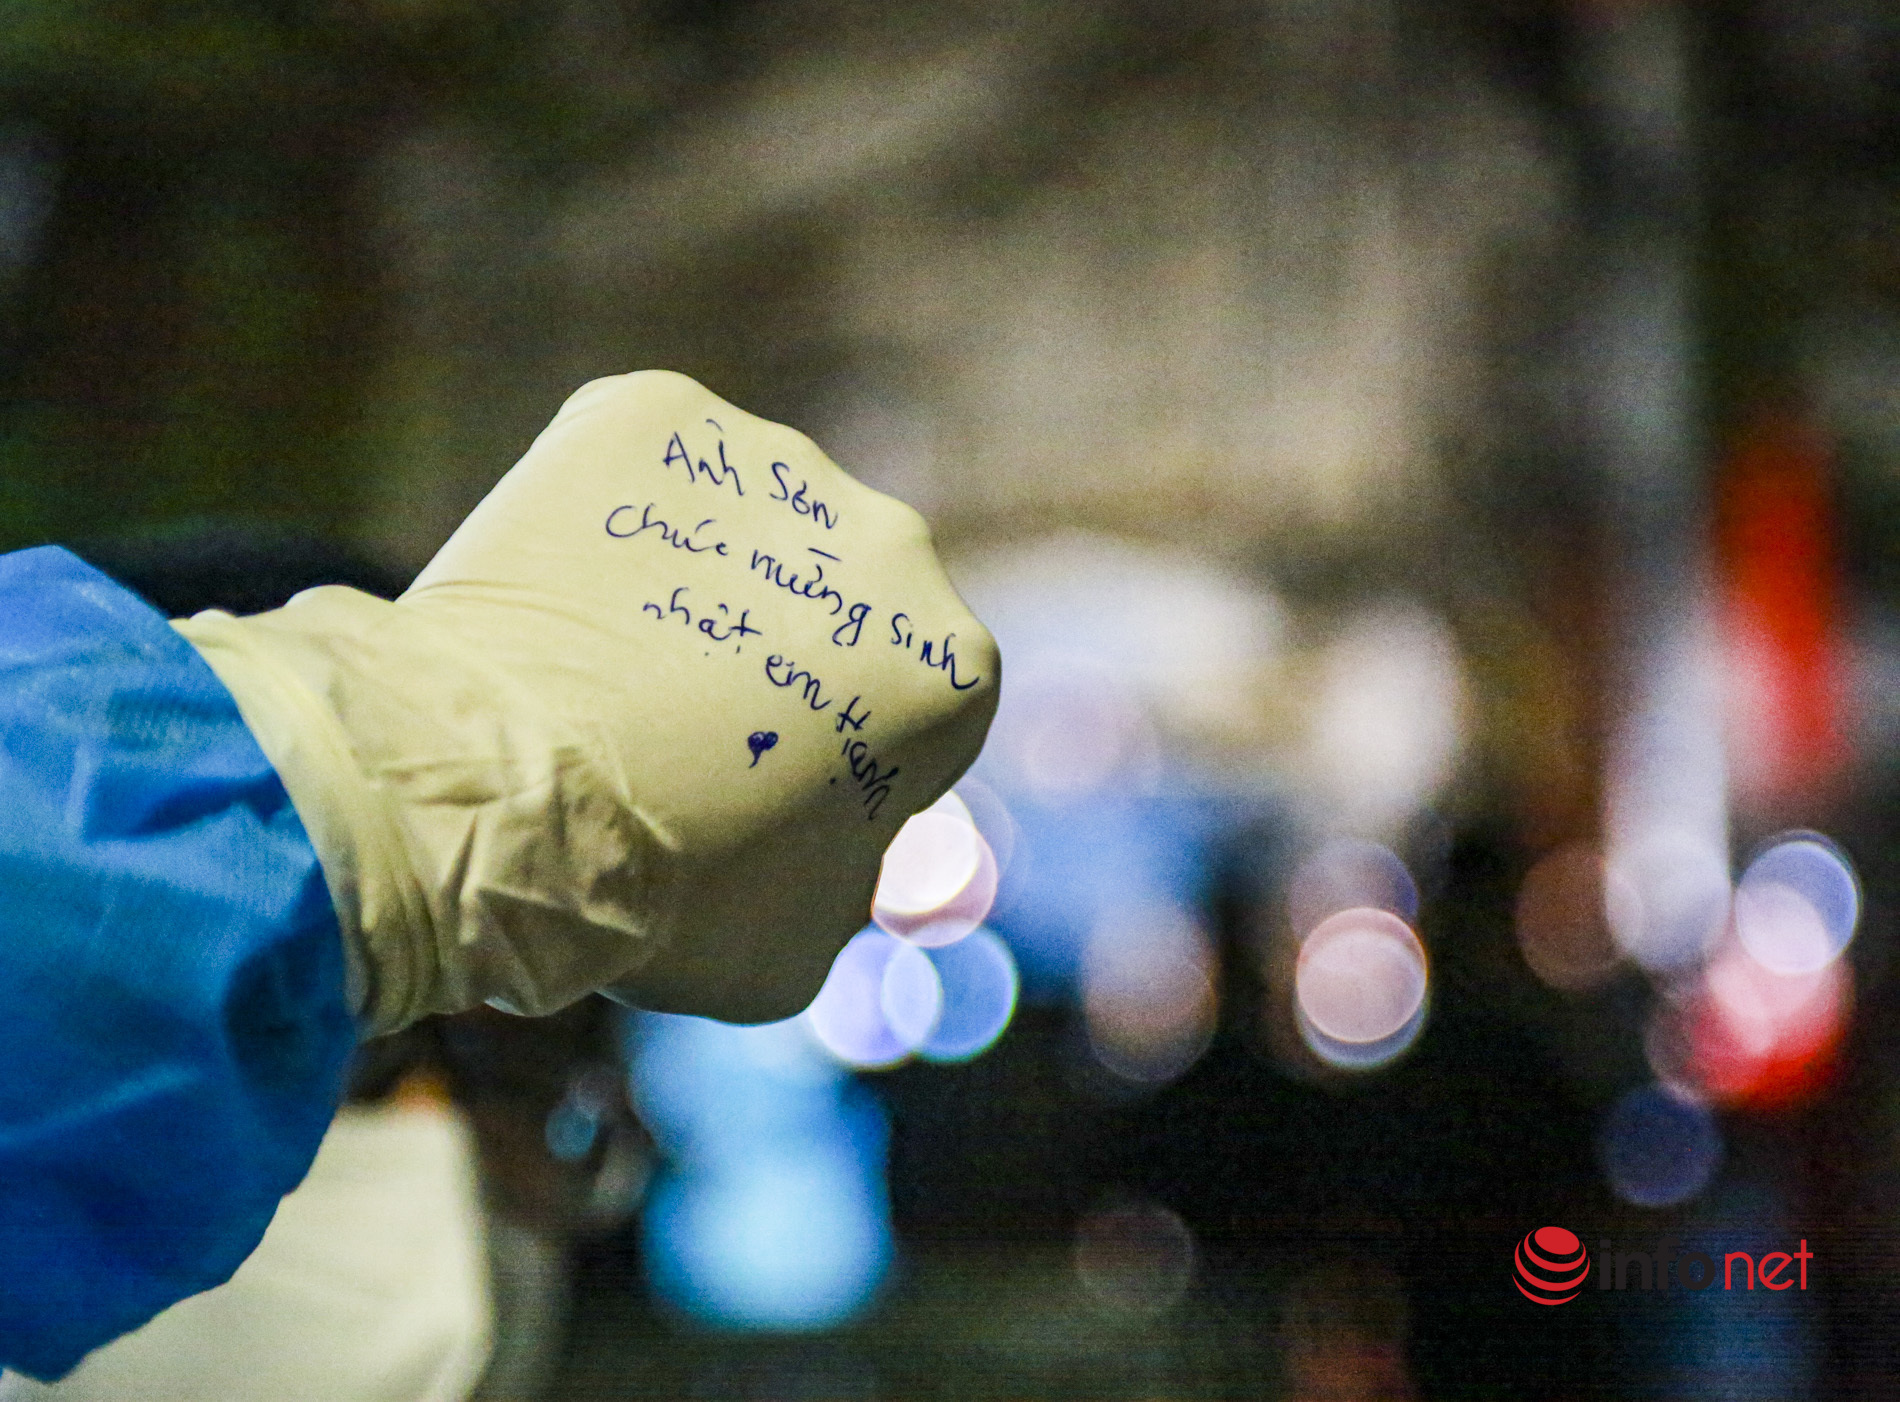 Anh Sơn
chúc mừng sinh
nhật em Hạnh
infonet